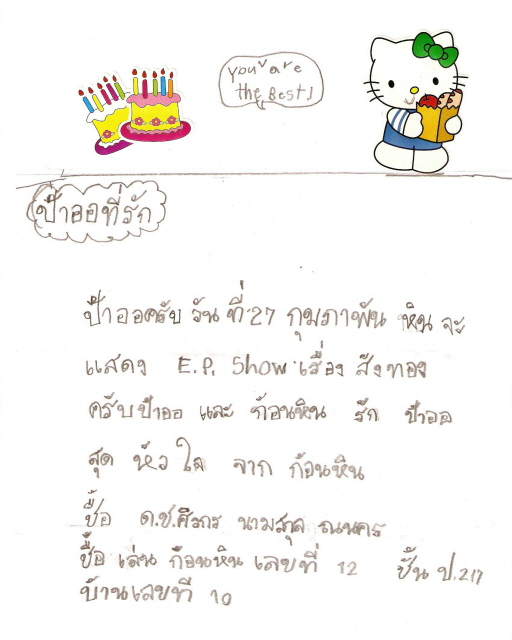 you're are
the Best!
ป้าออที่รัก
ป้าออครับ วัน ที่ 27 กุมภาพัน หินจะ
แสดง E.P. Show เรื่อง สังทอง
ครับป้าออ และ ก้อนหิน รัก ป้าออ
สุด หัว ใจ จาก ก้อนหิน
ชื่อ ด.ช.ศิวกร
ชื่อ เล่น ก้อนหิน เลขที่ 12 ชั้น ป.2/7
บ้านเลขที่ 10